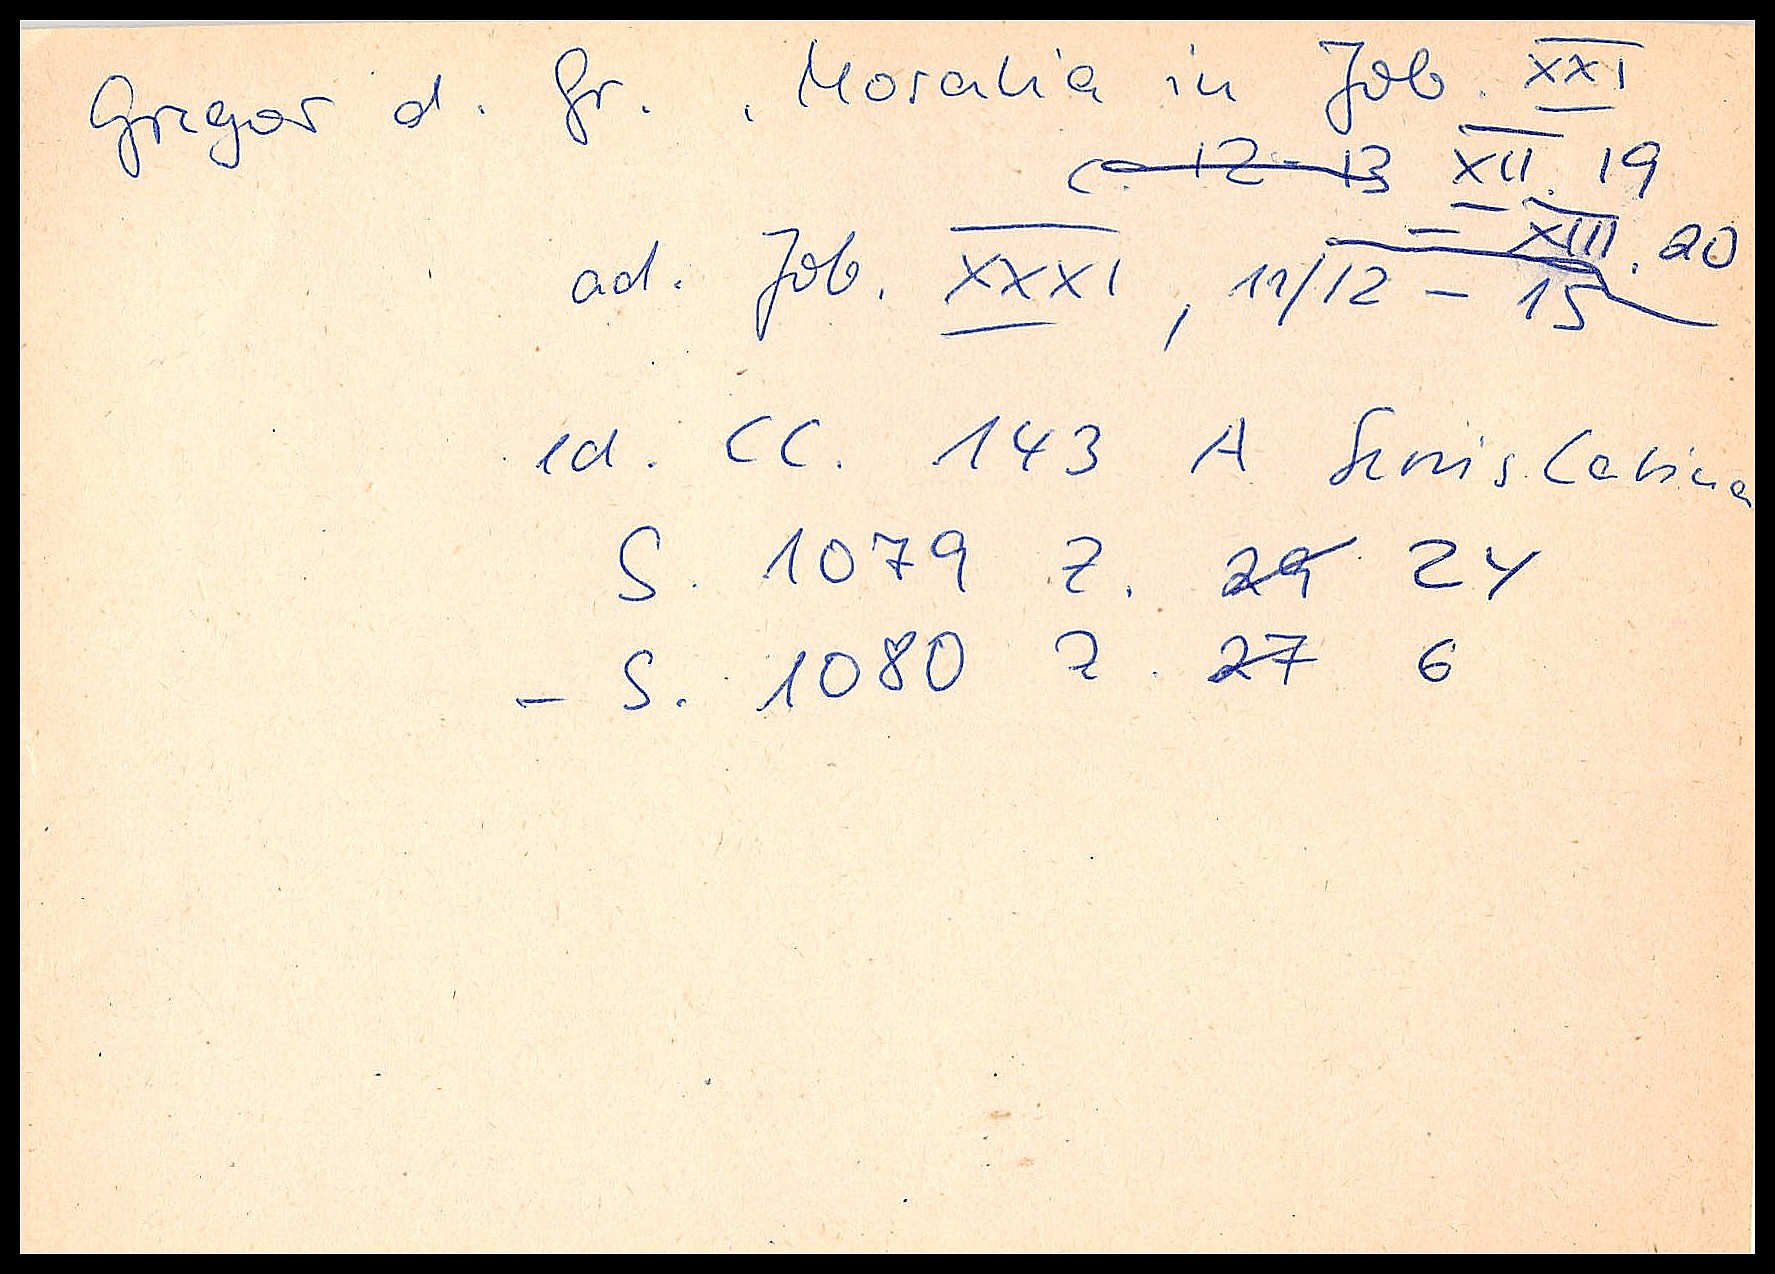 Gregor d. Gr. , Moralia in Job. XXI
c. 12 - 13 XII. 19
- XIII. 20
ad. Job. XXXI, 11/12 - 15
ed. CC. 143 A Series Latina
S. 1079 Z. 29 24
- S. 1080 Z. 27 6